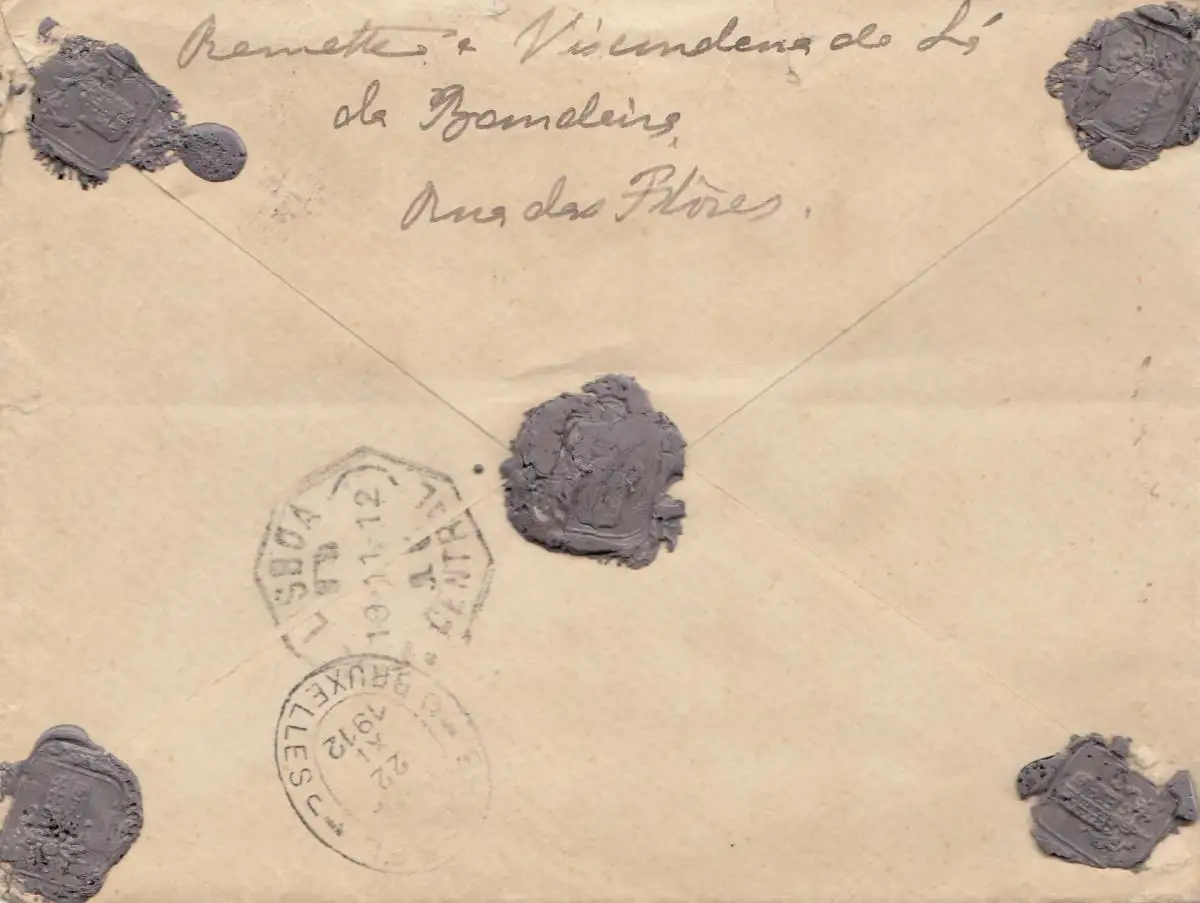 Remette a Viscondessa de Sá
da Bandeira,
Rua das Flôres.
LISBOA
CENTRAL
1
BRUXELLES
22
XI
1912